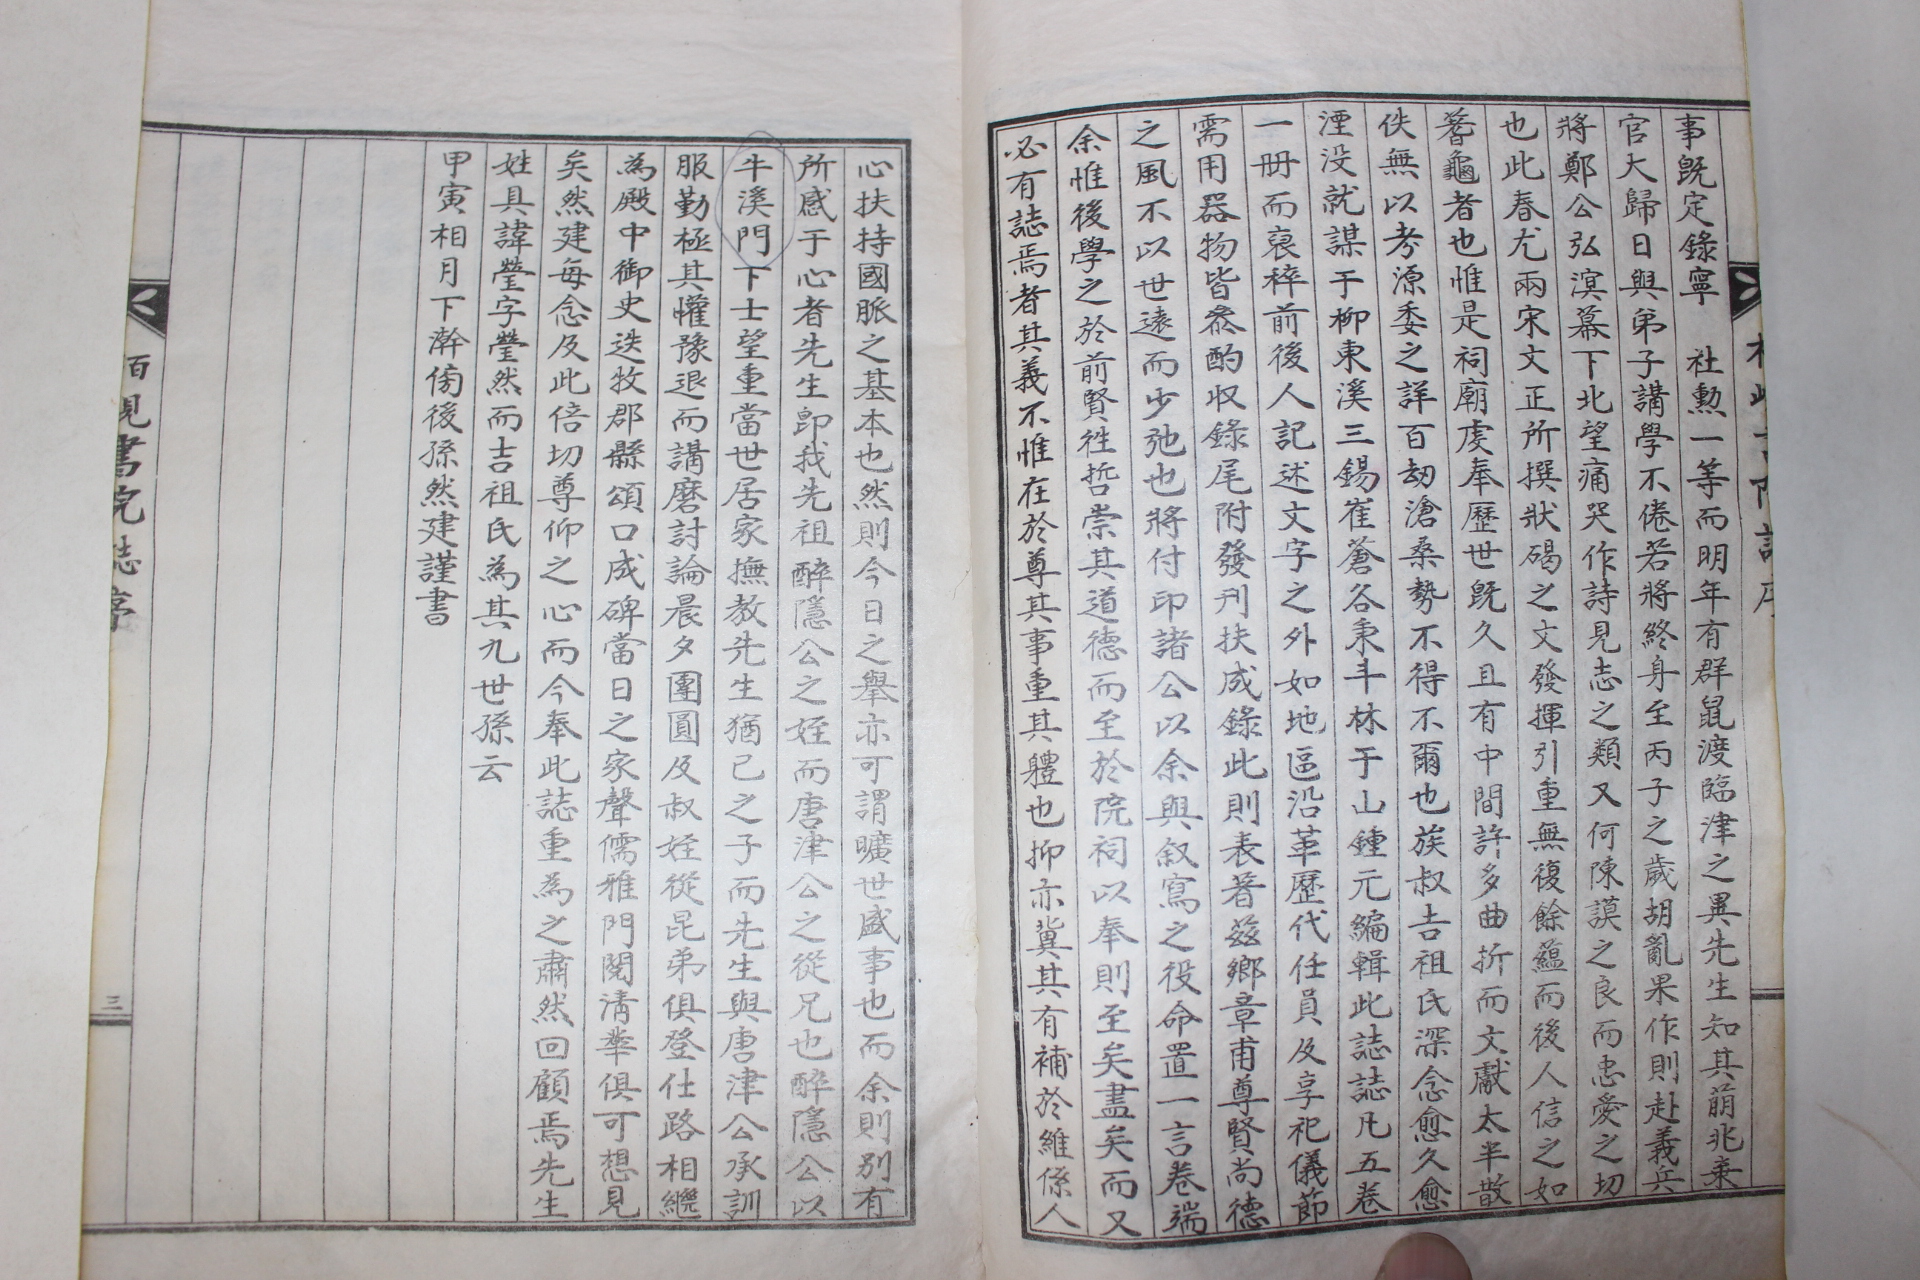 事旣定錄寧 社勲一等而明年有群鼠渡臨津之異先生知其萠兆乗
官大歸日與弟子講學不倦若將終身至丙子之歲胡亂果作則赴義兵
將鄭公弘溟幕下北望痛哭作詩見志之類又何陳謨之良而忠愛之切
也此春尤兩宋文正所撰狀碣之文發揮引重無復餘蘊而後人信之如
蓍龜者也惟是祠廟虔奉歷世旣久且有中間許多曲折而文獻太半散
佚無以考源委之詳百刼滄桑勢不得不爾也族叔吉祖氏深念愈久愈
湮没就謀于柳東溪三錫崔蒼谷秉斗林于山鍾元編輯此誌誌凡五卷
一册而裒稡前後人記述文字之外如地區沿革歷代任員及享祀儀節
需用器物皆叅酌収錄尾附發刋扶成錄此則表著玆鄉章甫尊賢尚德
之風不以世遠而少弛也將付印諸公以余與叙寫之役命置一言卷端
余惟後學之於前賢徃哲崇其道德而至於院祠以奉則至矣盡矣而又
必有誌焉者其義不惟在於尊其事重其軆也抑亦冀其有補於維係人
栢峴書院誌序
心扶持國脈之基本也然則今日之舉亦可謂曠世盛事也而余則别有
所感于心者先生卽我先祖醉隱公之姪而唐津公之從兄也醉隱公以
牛溪門下士望重當世居家撫教先生猶己之子而先生與唐津公承訓
服勤極其懽豫退而講磨討論晨夕團圓及叔姪從昆弟俱登仕路相繼
為殿中御史迭牧郡縣頌口成碑當日之家聲儒雅門閥淸華俱可想見
矣然建每念及此倍切尊仰之心而今奉此誌重為之肅然回顧焉先生
姓具諱瑩字瑩然而吉祖氏為其九世孫云
甲寅相月下澣傍後孫然建謹書
書院誌序
三